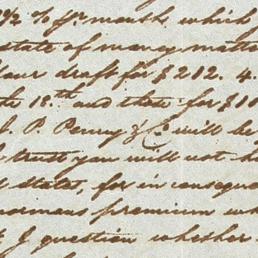 2 1/2 % pr. month, which
state of money matter
Your draft for $212. 4.
the 18th and then for $10
J. P. Penny & Co will be
I trust you will not ha
of States, for in conseque
enormous premium wh
I question whether